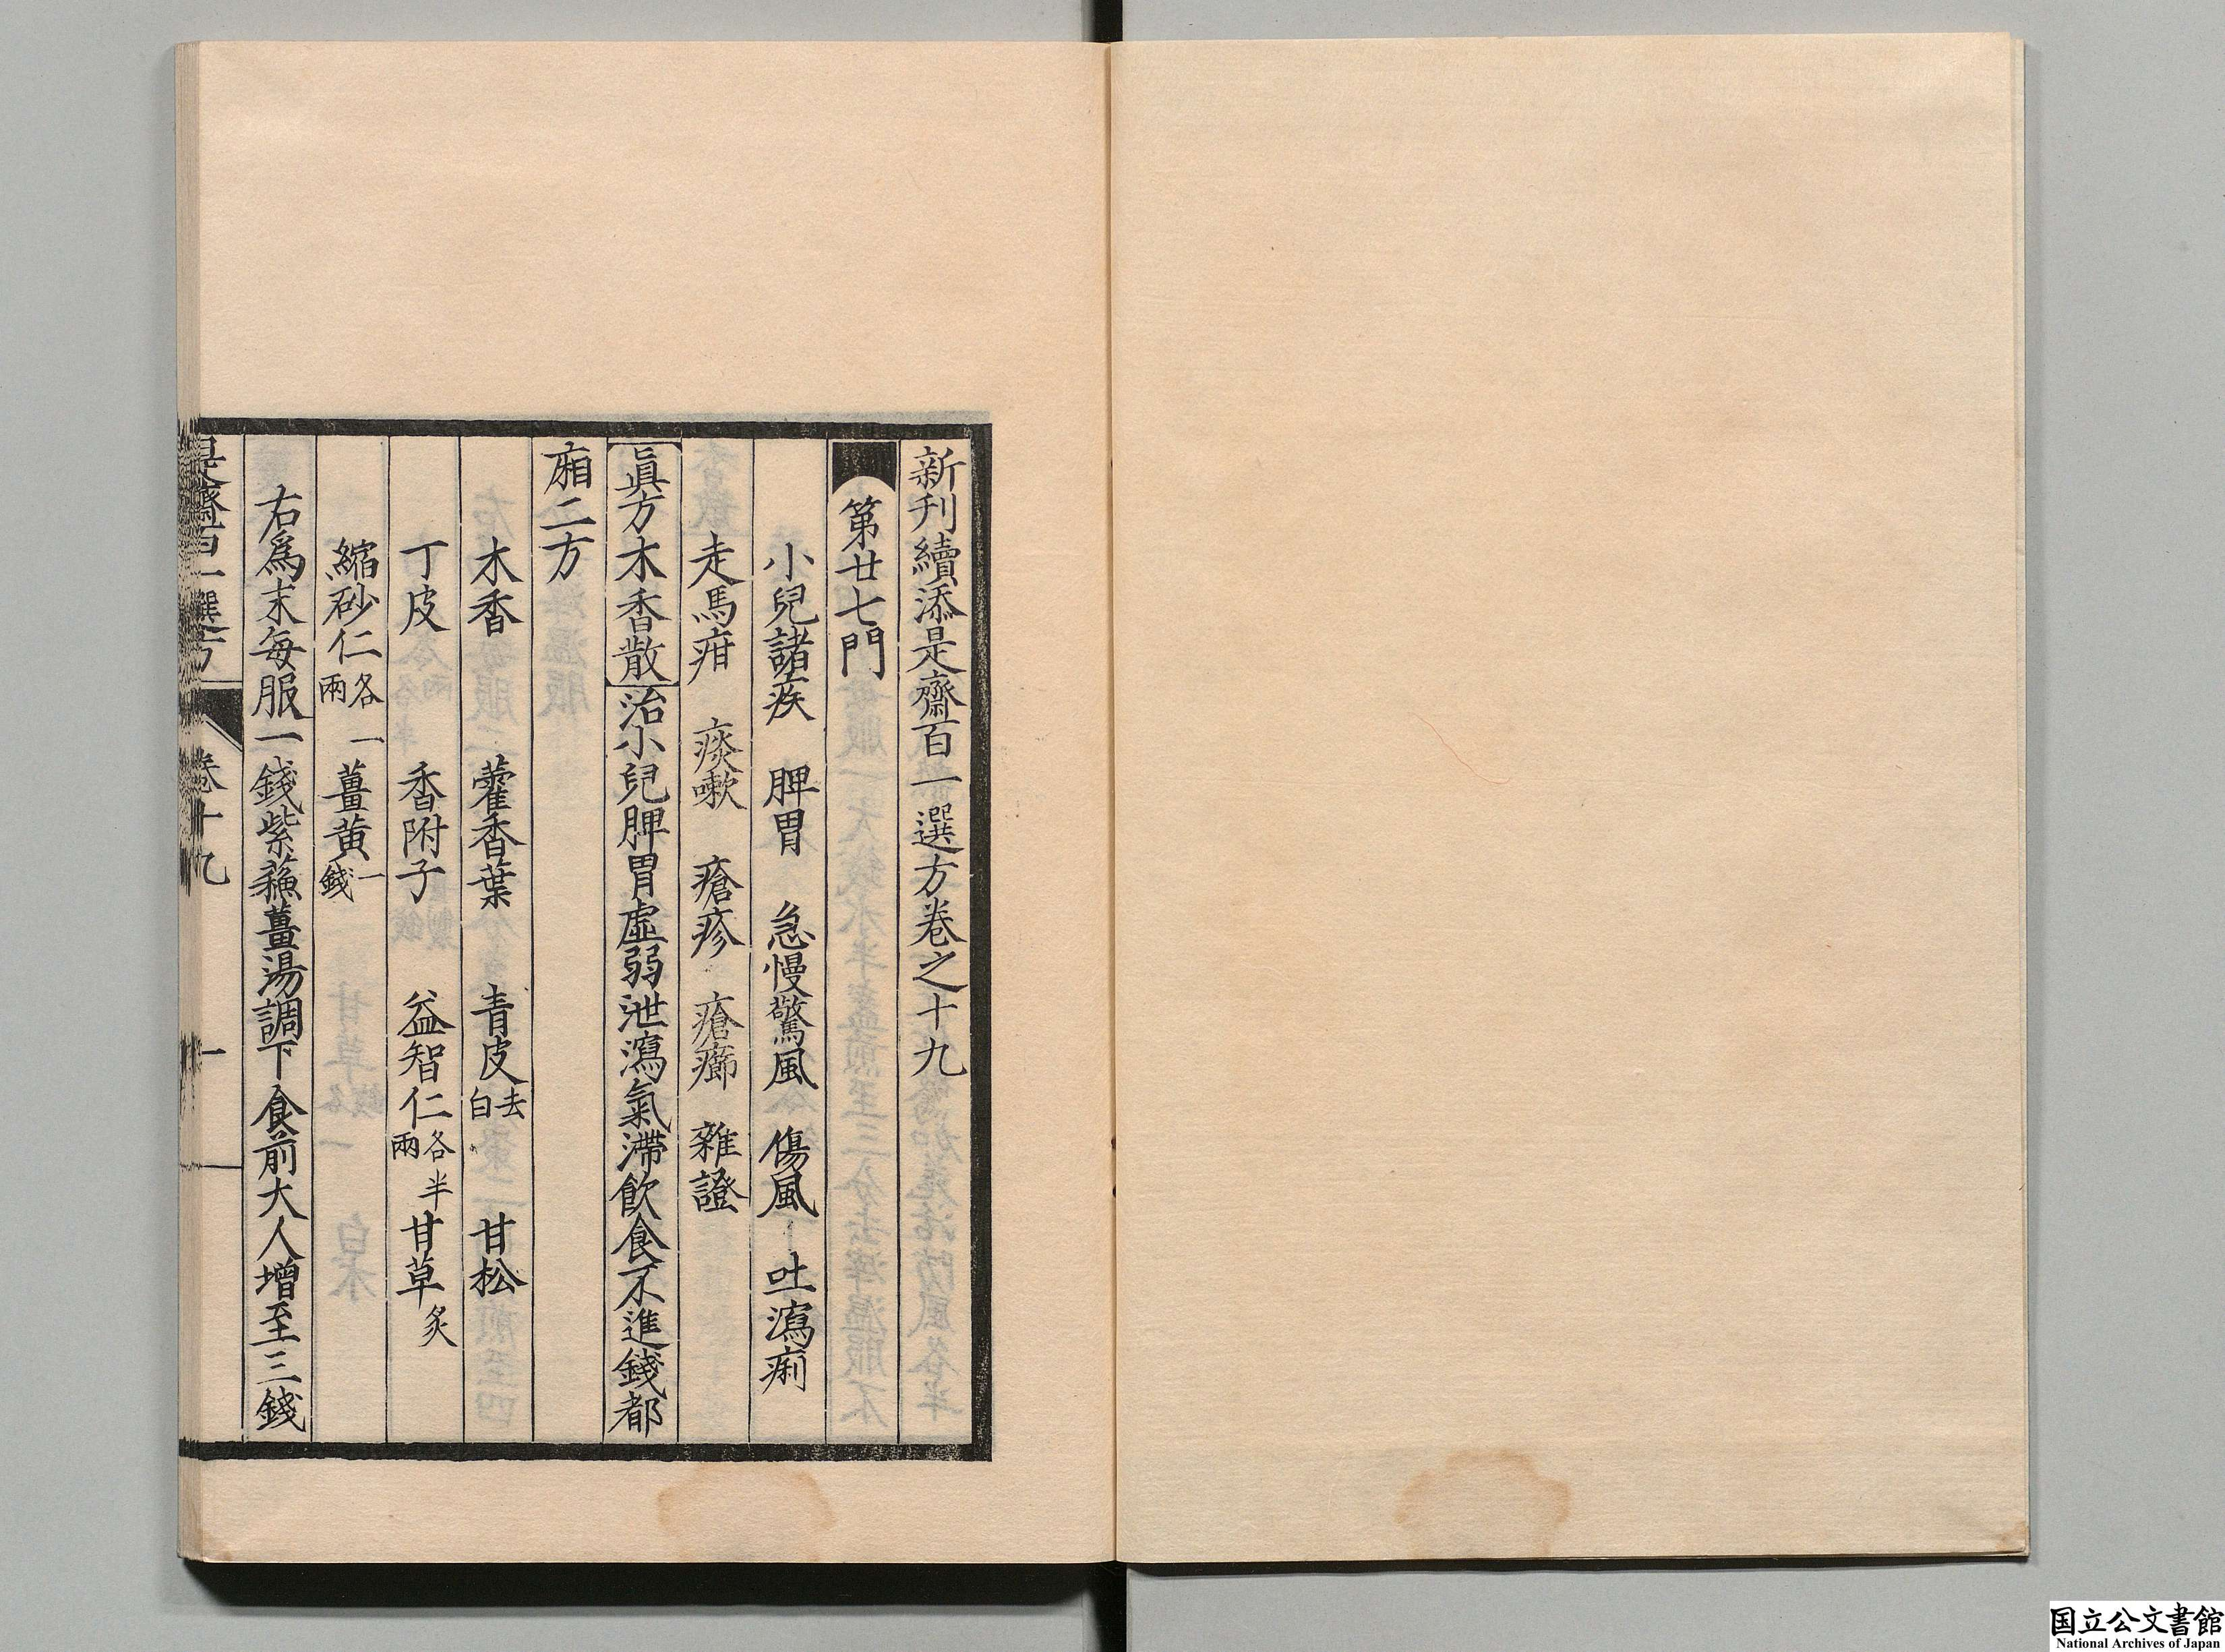 新刋續添是齋百一選方卷之十九
第廿七門
小兒諸疾　脾胃　急慢驚風　傷風　吐瀉痢
走馬疳　痰嗽　瘡疹　瘡癤　雜證
眞方木香散治小兒脾胃虛弱泄瀉氣滯飲食不進錢都
廂二方
木香　藿香葉　青皮去白　甘松
丁皮　香附子　益智仁各半兩　甘草炙
縮砂仁各一兩　薑黃一錢
右爲末每服一錢紫蘓薑湯調下食前大人增至三錢
是齋百一選方　卷十九　一
国立公文書館
National Archives of Japan